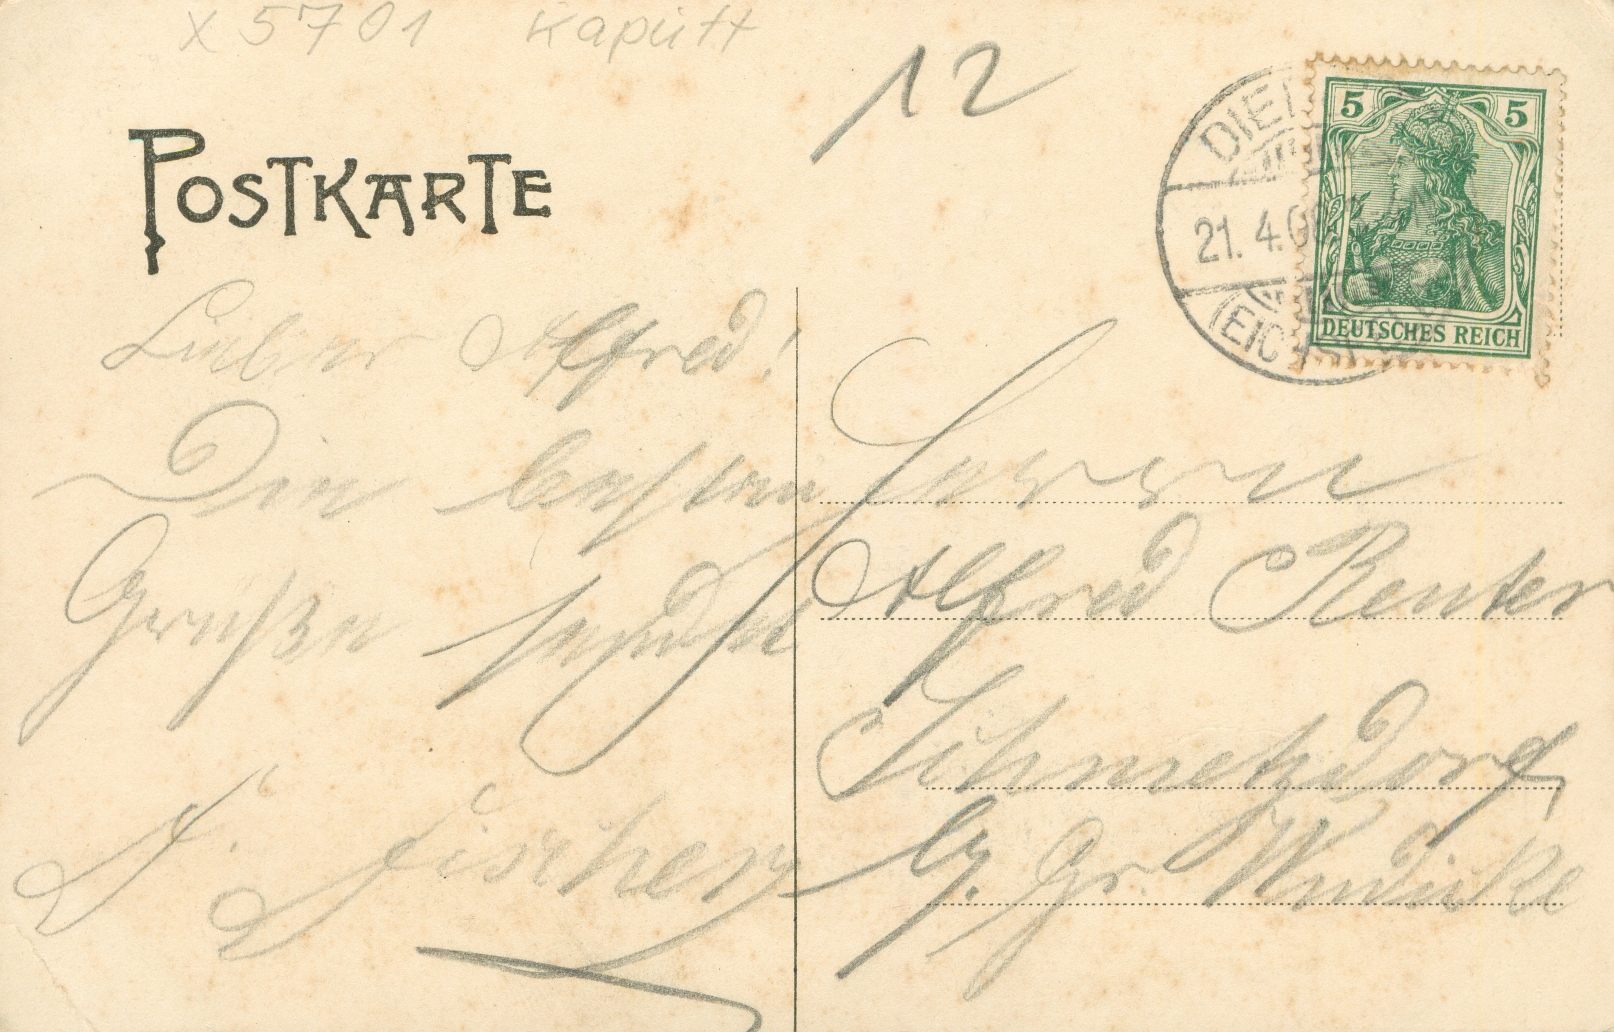 x 5701 Kaputt
12
POSTKARTE
5 5
DEUTSCHES REICH
21. 4.
Lieber Alfred!
Die besten
Grüße sendet
F. Fischer
Herrn
Alfred Reuter
Schmetzdorf,
b. Gr. Wudicke